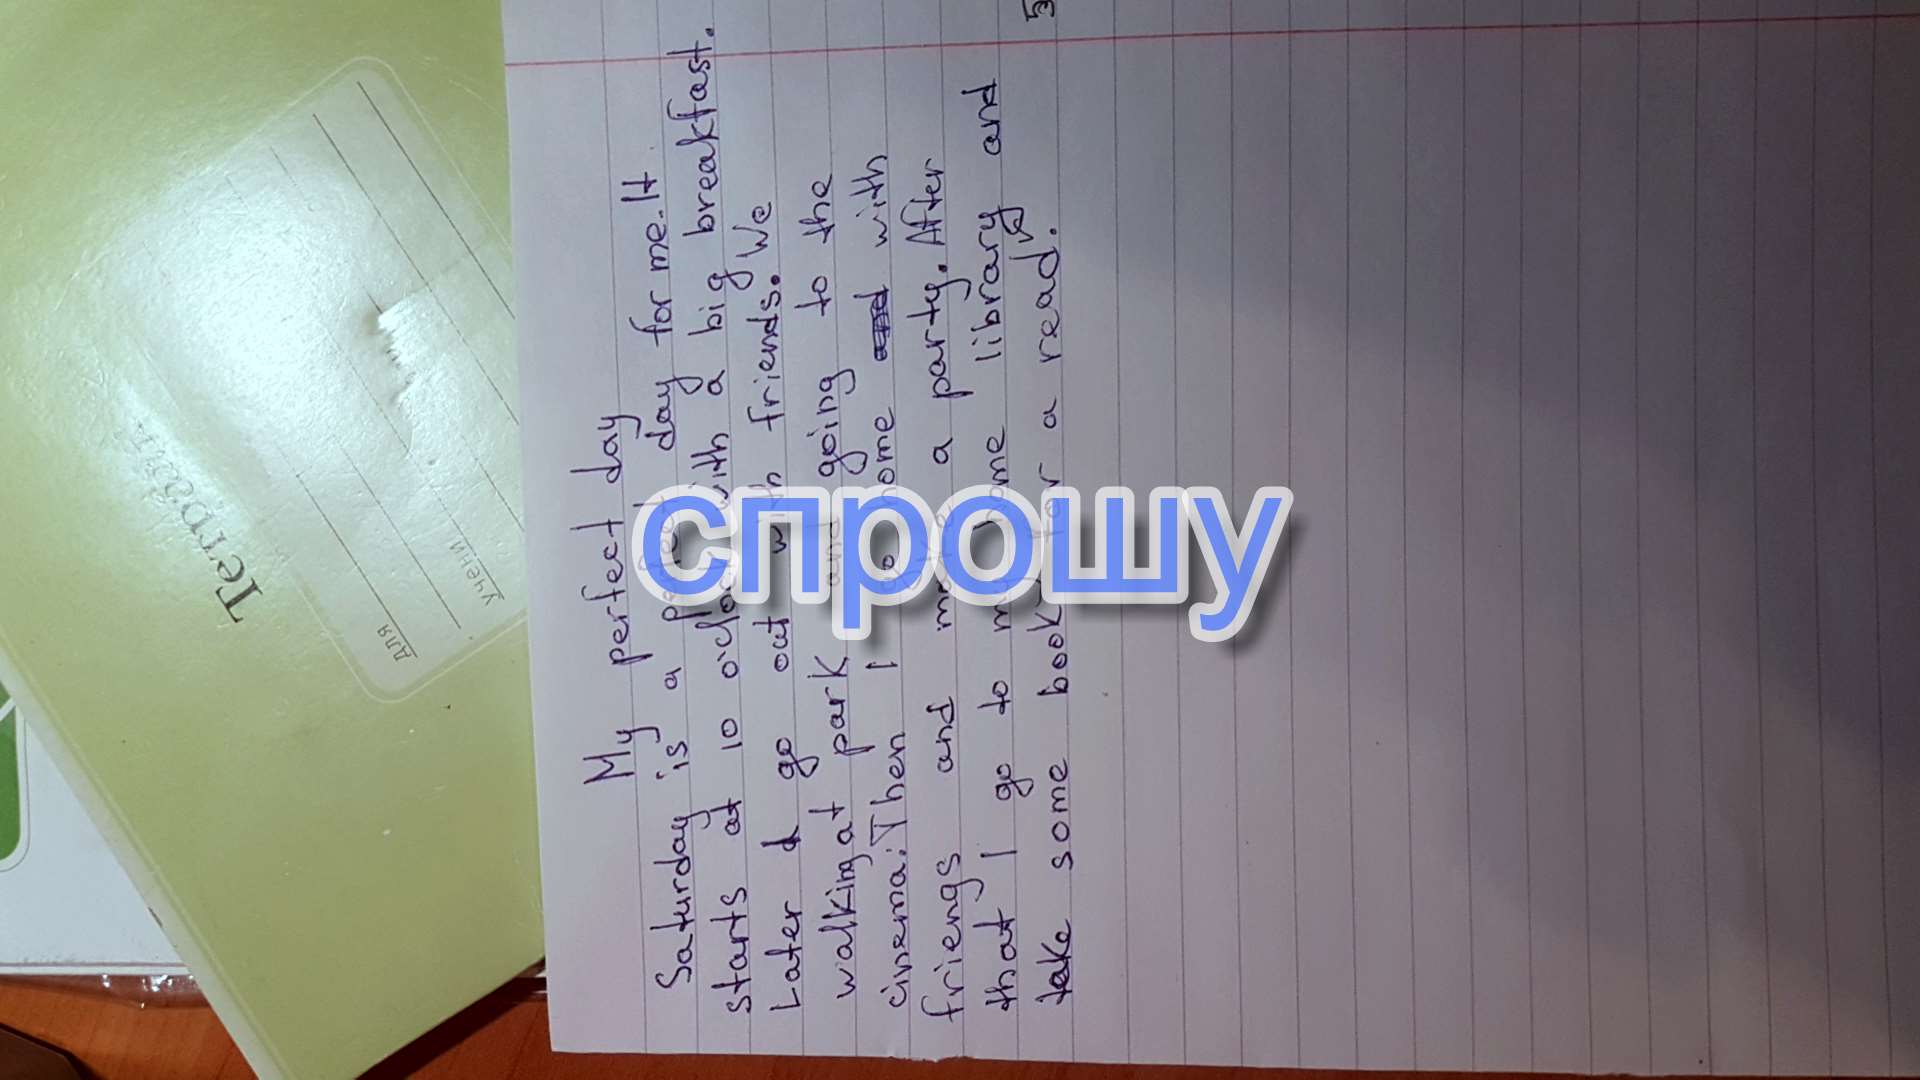 My perfect day
Saturday is a perfect day for me. It
starts at 10 o'clock with a big breakfast.
Later I go out with friends. We
walking at park and going to the
cinema. Then I go home with
friengs and make a party. After
that I go to my home library and
take some book for a read.
спрошу
Тетрадь
для
учени